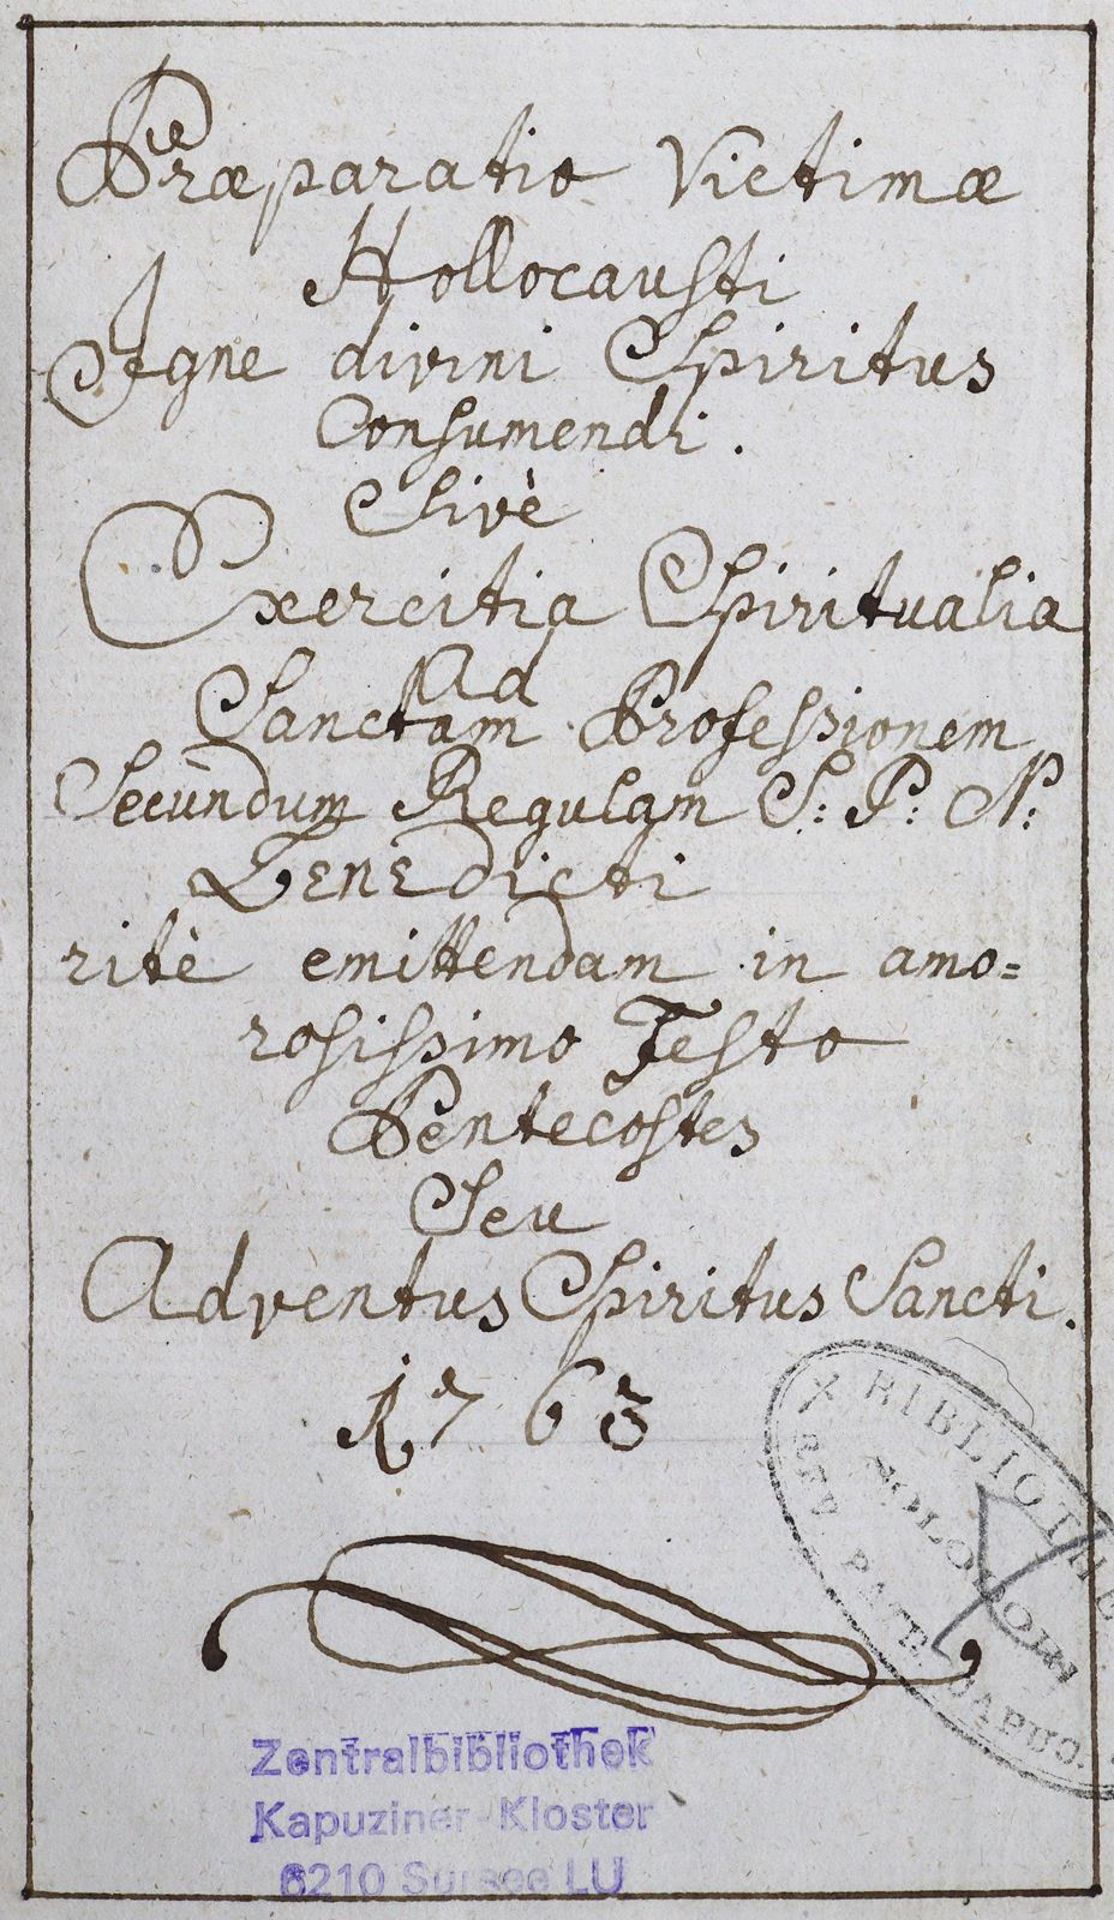 Præparatio Victimæ
Hollocausti
Igne divini Spiritus
Consumendi.
Sivè
Exercitia Spiritualia
Ad
Sanctam Professionem
Secundum Regulam S: P: N:
Benedicti
ritè emittendam in amo=
rosissimo Festo
Pentecostes
Seu
Adventus Spiritus Sancti.
1763
X BIBLIOTHE
SOLODORI
REV. PATR. CAPUC.
Zentralbibliothek
Kapuziner-Kloster
6210 Sursee LU